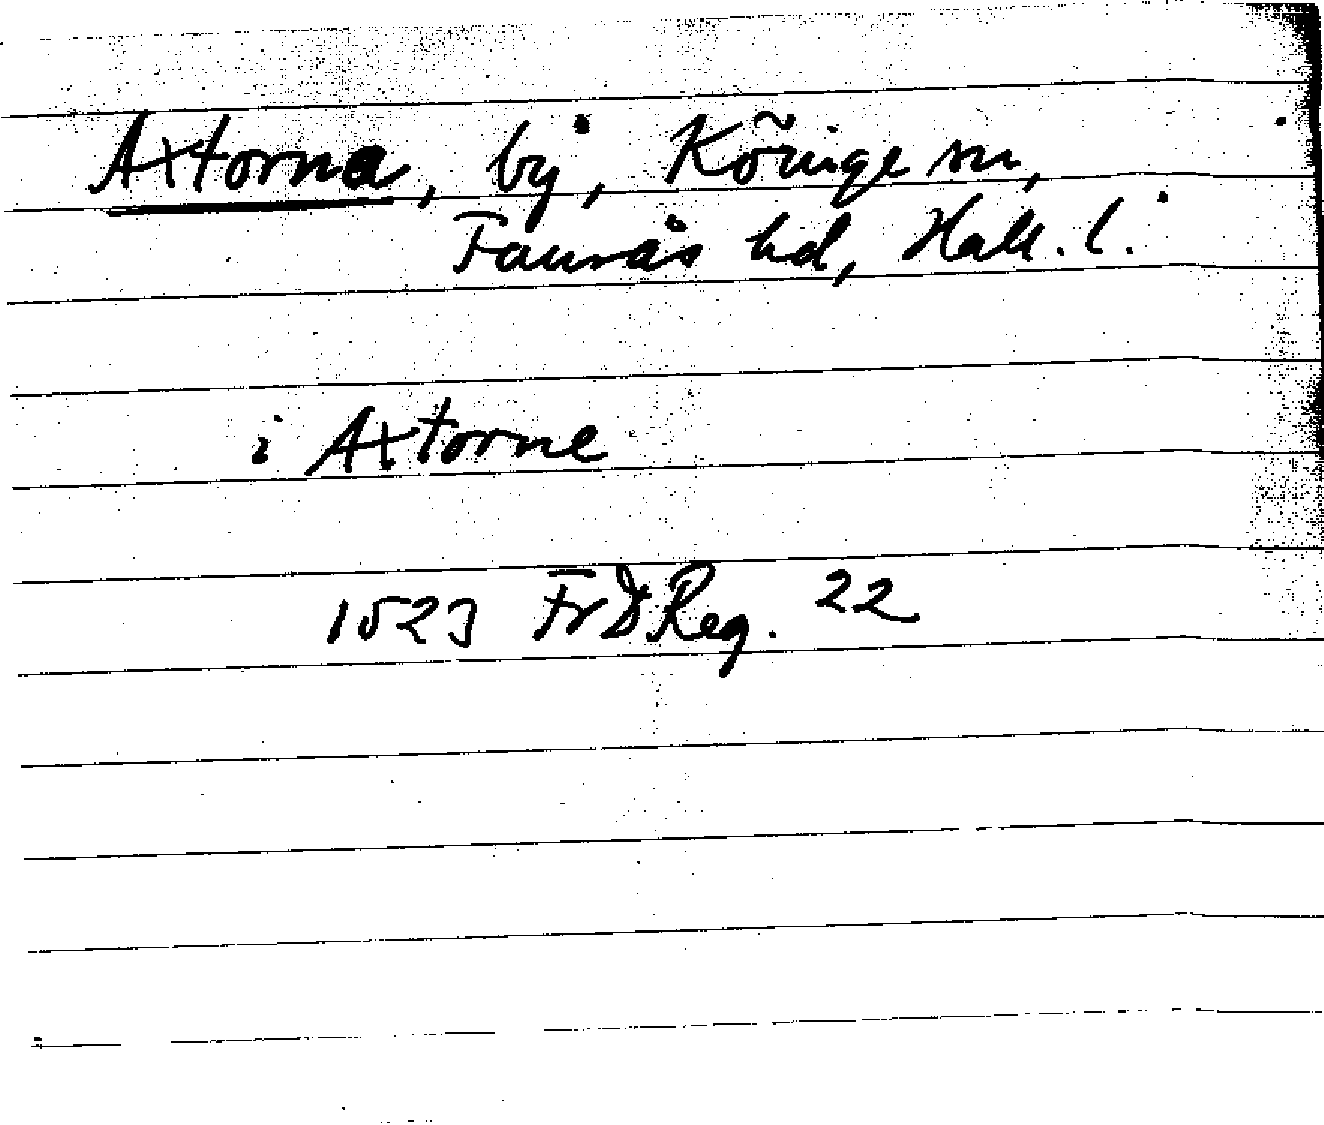 Axtorna, by, Köinge sn,
Faurås hd, Hall. l.
i Axtorne
1523 FrdReg. 22